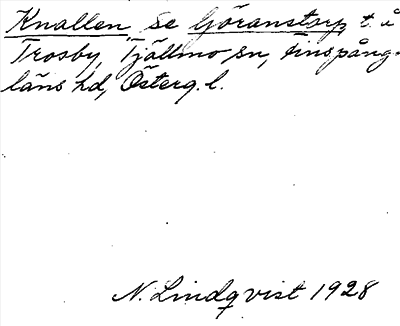 Knallen se Göranstorp t. å
Trosby, Tjällmo sn, Finspång-
läns hd, Österg. l.
N. Lindqvist 1928